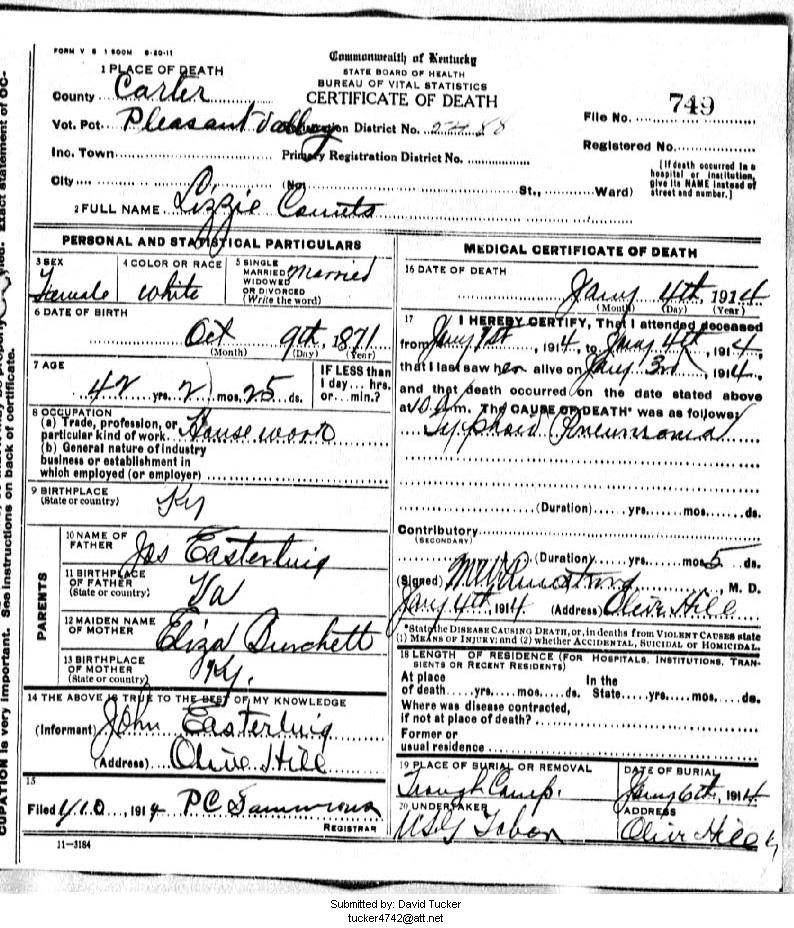 FORM V S 1 500M 8-20-11
Commonwealth of Kentucky
STATE BOARD OF HEALTH
BUREAU OF VITAL STATISTICS
CERTIFICATE OF DEATH
1 PLACE OF DEATH
County Carter
Vot. Pct. Pleasant Valley Registration District No.
File No. 749
Inc. Town Primary Registration District No.
Registered No.
City (No. St., Ward)
[If death occurred in a hospital or institution, give its NAME instead of street and number.]
2 FULL NAME Lizzie Counts
PERSONAL AND STATISTICAL PARTICULARS
3 SEX Female
4 COLOR OR RACE white
5 SINGLE MARRIED WIDOWED OR DIVORCED (Write the word) Married
6 DATE OF BIRTH
Oct 9th, 1871
(Month) (Day) (Year)
7 AGE
42 yrs. 2 mos. 25 ds.
IF LESS than 1 day... hrs. or... min.?
8 OCCUPATION
(a) Trade, profession, or particular kind of work. Housework
(b) General nature of industry
business or establishment in
which employed (or employer)
9 BIRTHPLACE
(State or country) Ky
PARENTS
10 NAME OF FATHER Jas Easterling
11 BIRTHPLACE OF FATHER (State or country) Va
12 MAIDEN NAME OF MOTHER Eliza Burchett
13 BIRTHPLACE OF MOTHER (State or country) Ky.
14 THE ABOVE IS TRUE TO THE BEST OF MY KNOWLEDGE
(Informant) John Easterling
(Address) Olive Hill
15
Filed 1/10, 1914 P C Sammons
REGISTRAR
11-3184
MEDICAL CERTIFICATE OF DEATH
16 DATE OF DEATH
Jany 4th, 1914
(Month) (Day) (Year)
17 I HEREBY CERTIFY, That I attended deceased
from Jany 1st, 1914, to Jany 4th, 1914,
that I last saw her alive on Jany 3rd, 1914,
and that death occurred on the date stated above
at 10 m. The CAUSE OF DEATH* was as follows:
Typhoid Pneumonia
(Duration) yrs. mos. ds.
Contributory
(SECONDARY)
(Duration) yrs. mos. 5 ds.
(Signed) Armstrong, M. D.
Jany 4th, 1914 (Address) Olive Hill
*State the DISEASE CAUSING DEATH, or, in deaths from VIOLENT CAUSES state
(1) MEANS OF INJURY; and (2) whether ACCIDENTAL, SUICIDAL OR HOMICIDAL.
18 LENGTH OF RESIDENCE (FOR HOSPITALS, INSTITUTIONS, TRANSIENTS OR RECENT RESIDENTS)
At place of death yrs. mos. ds. In the State yrs. mos. ds.
Where was disease contracted,
if not at place of death?
Former or
usual residence
19 PLACE OF BURIAL OR REMOVAL Trough Camp.
DATE OF BURIAL Jany 6th, 1914
20 UNDERTAKER USG Tabor
ADDRESS Olive Hill Ky
CUPATION is very important. See instructions on back of certificate.
Exact statement of OC-
Submitted by: David Tucker
tucker4742@att.net